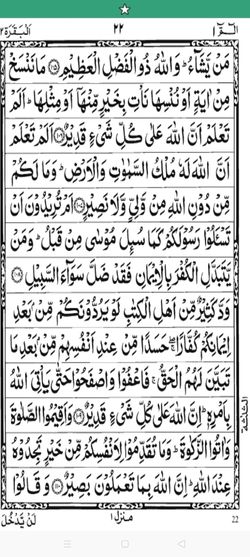 البقرة ٢ ٢٢ الٓمّٓ ١
مَنْ يَّشَآءُ ؕ وَاللّٰهُ ذُو الْفَضْلِ الْعَظِيْمِ ﴿۱۰۵﴾ مَا نَنْسَخْ
مِنْ اٰيَةٍ اَوْ نُنْسِهَا نَاْتِ بِخَيْرٍ مِّنْهَاۤ اَوْ مِثْلِهَا ؕ اَلَمْ
تَعْلَمْ اَنَّ اللّٰهَ عَلٰى كُلِّ شَىْءٍ قَدِيْرٌ ﴿۱۰۶﴾ اَلَمْ تَعْلَمْ
اَنَّ اللّٰهَ لَهٗ مُلْكُ السَّمٰوٰتِ وَالْاَرْضِ ؕ وَمَا لَكُمْ
مِّنْ دُوْنِ اللّٰهِ مِنْ وَّلِىٍّ وَّلَا نَصِيْرٍ ﴿۱۰۷﴾ اَمْ تُرِيْدُوْنَ اَنْ
تَسْـَٔلُوْا رَسُوْلَكُمْ كَمَا سُئِلَ مُوْسٰى مِنْ قَبْلُ ؕ وَمَنْ
يَّتَبَدَّلِ الْكُفْرَ بِالْاِيْمَانِ فَقَدْ ضَلَّ سَوَآءَ السَّبِيْلِ ﴿۱۰۸﴾
وَدَّ كَثِيْرٌ مِّنْ اَهْلِ الْكِتٰبِ لَوْ يَرُدُّوْنَكُمْ مِّنْۢ بَعْدِ
اِيْمَانِكُمْ كُفَّارًا ۖۚ حَسَدًا مِّنْ عِنْدِ اَنْفُسِهِمْ مِّنْۢ بَعْدِ مَا
تَبَيَّنَ لَهُمُ الْحَقُّ ۚ فَاعْفُوْا وَاصْفَحُوْا حَتّٰى يَاْتِىَ اللّٰهُ
بِاَمْرِهٖ ؕ اِنَّ اللّٰهَ عَلٰى كُلِّ شَىْءٍ قَدِيْرٌ ﴿۱۰۹﴾ وَاَقِيْمُوا الصَّلٰوةَ
وَاٰتُوا الزَّكٰوةَ ؕ وَمَا تُقَدِّمُوْا لِاَنْفُسِكُمْ مِّنْ خَيْرٍ تَجِدُوْهُ
عِنْدَ اللّٰهِ ؕ اِنَّ اللّٰهَ بِمَا تَعْمَلُوْنَ بَصِيْرٌ ﴿۱۱۰﴾ وَقَالُوْا
لَنْ يَّدْخُلَ منزل ١ 22